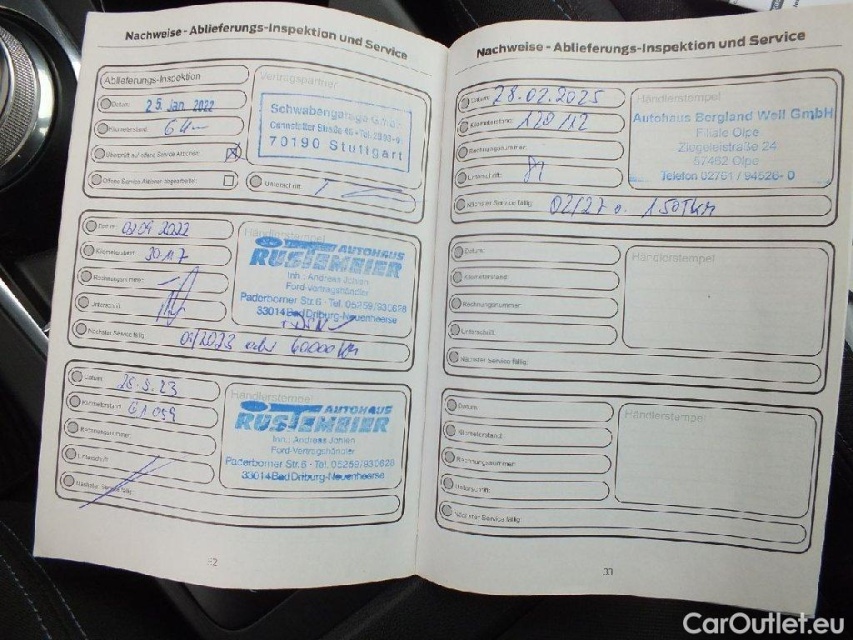 Nachweise - Ablieferungs-Inspektion und Service
Ablieferungs-Inspektion
Datum: 25. Jan. 2022
Kilometerstand: 64-
Überprüft auf offene Service Aktionen:
Offene Service Aktionen abgearbeitet:
Vertragspartner
Schwabengarage GmbH
Cannstatter Straße 46
70190 Stuttgart
Unterschrift:
Datum: 09.09.2022
Kilometerstand: 30117
Rechnungsnummer:
Unterschrift:
Nächster Service fällig: 09/2023 oder 60000 km
Händlerstempel
AUTOHAUS
RUSTEMEIER
Inh.: Andreas Johlen
Ford-Vertragshändler
Paderborner Str. 6 · Tel. 05259/930628
33014 Bad Driburg-Neuenheerse
Datum: 25.5.23
Kilometerstand: 61059
Rechnungsnummer:
Unterschrift:
Nächster Service fällig:
Händlerstempel
AUTOHAUS
RUSTEMEIER
Inh.: Andreas Johlen
Ford-Vertragshändler
Paderborner Str. 6 · Tel. 05259/930628
33014 Bad Driburg-Neuenheerse
32
Nachweise - Ablieferungs-Inspektion und Service
Datum: 28.02.2025
Kilometerstand: 120112
Rechnungsnummer:
Unterschrift:
Nächster Service fällig: 02/27 o. 150TKM
Händlerstempel
Autohaus Bergland Well GmbH
Filiale Olpe
Ziegeleistraße 24
57462 Olpe
Telefon 02761 / 94526- 0
Datum:
Kilometerstand:
Rechnungsnummer:
Unterschrift:
Nächster Service fällig:
Händlerstempel
Datum:
Kilometerstand:
Rechnungsnummer:
Unterschrift:
Nächster Service fällig:
Händlerstempel
33
CarOutlet.eu